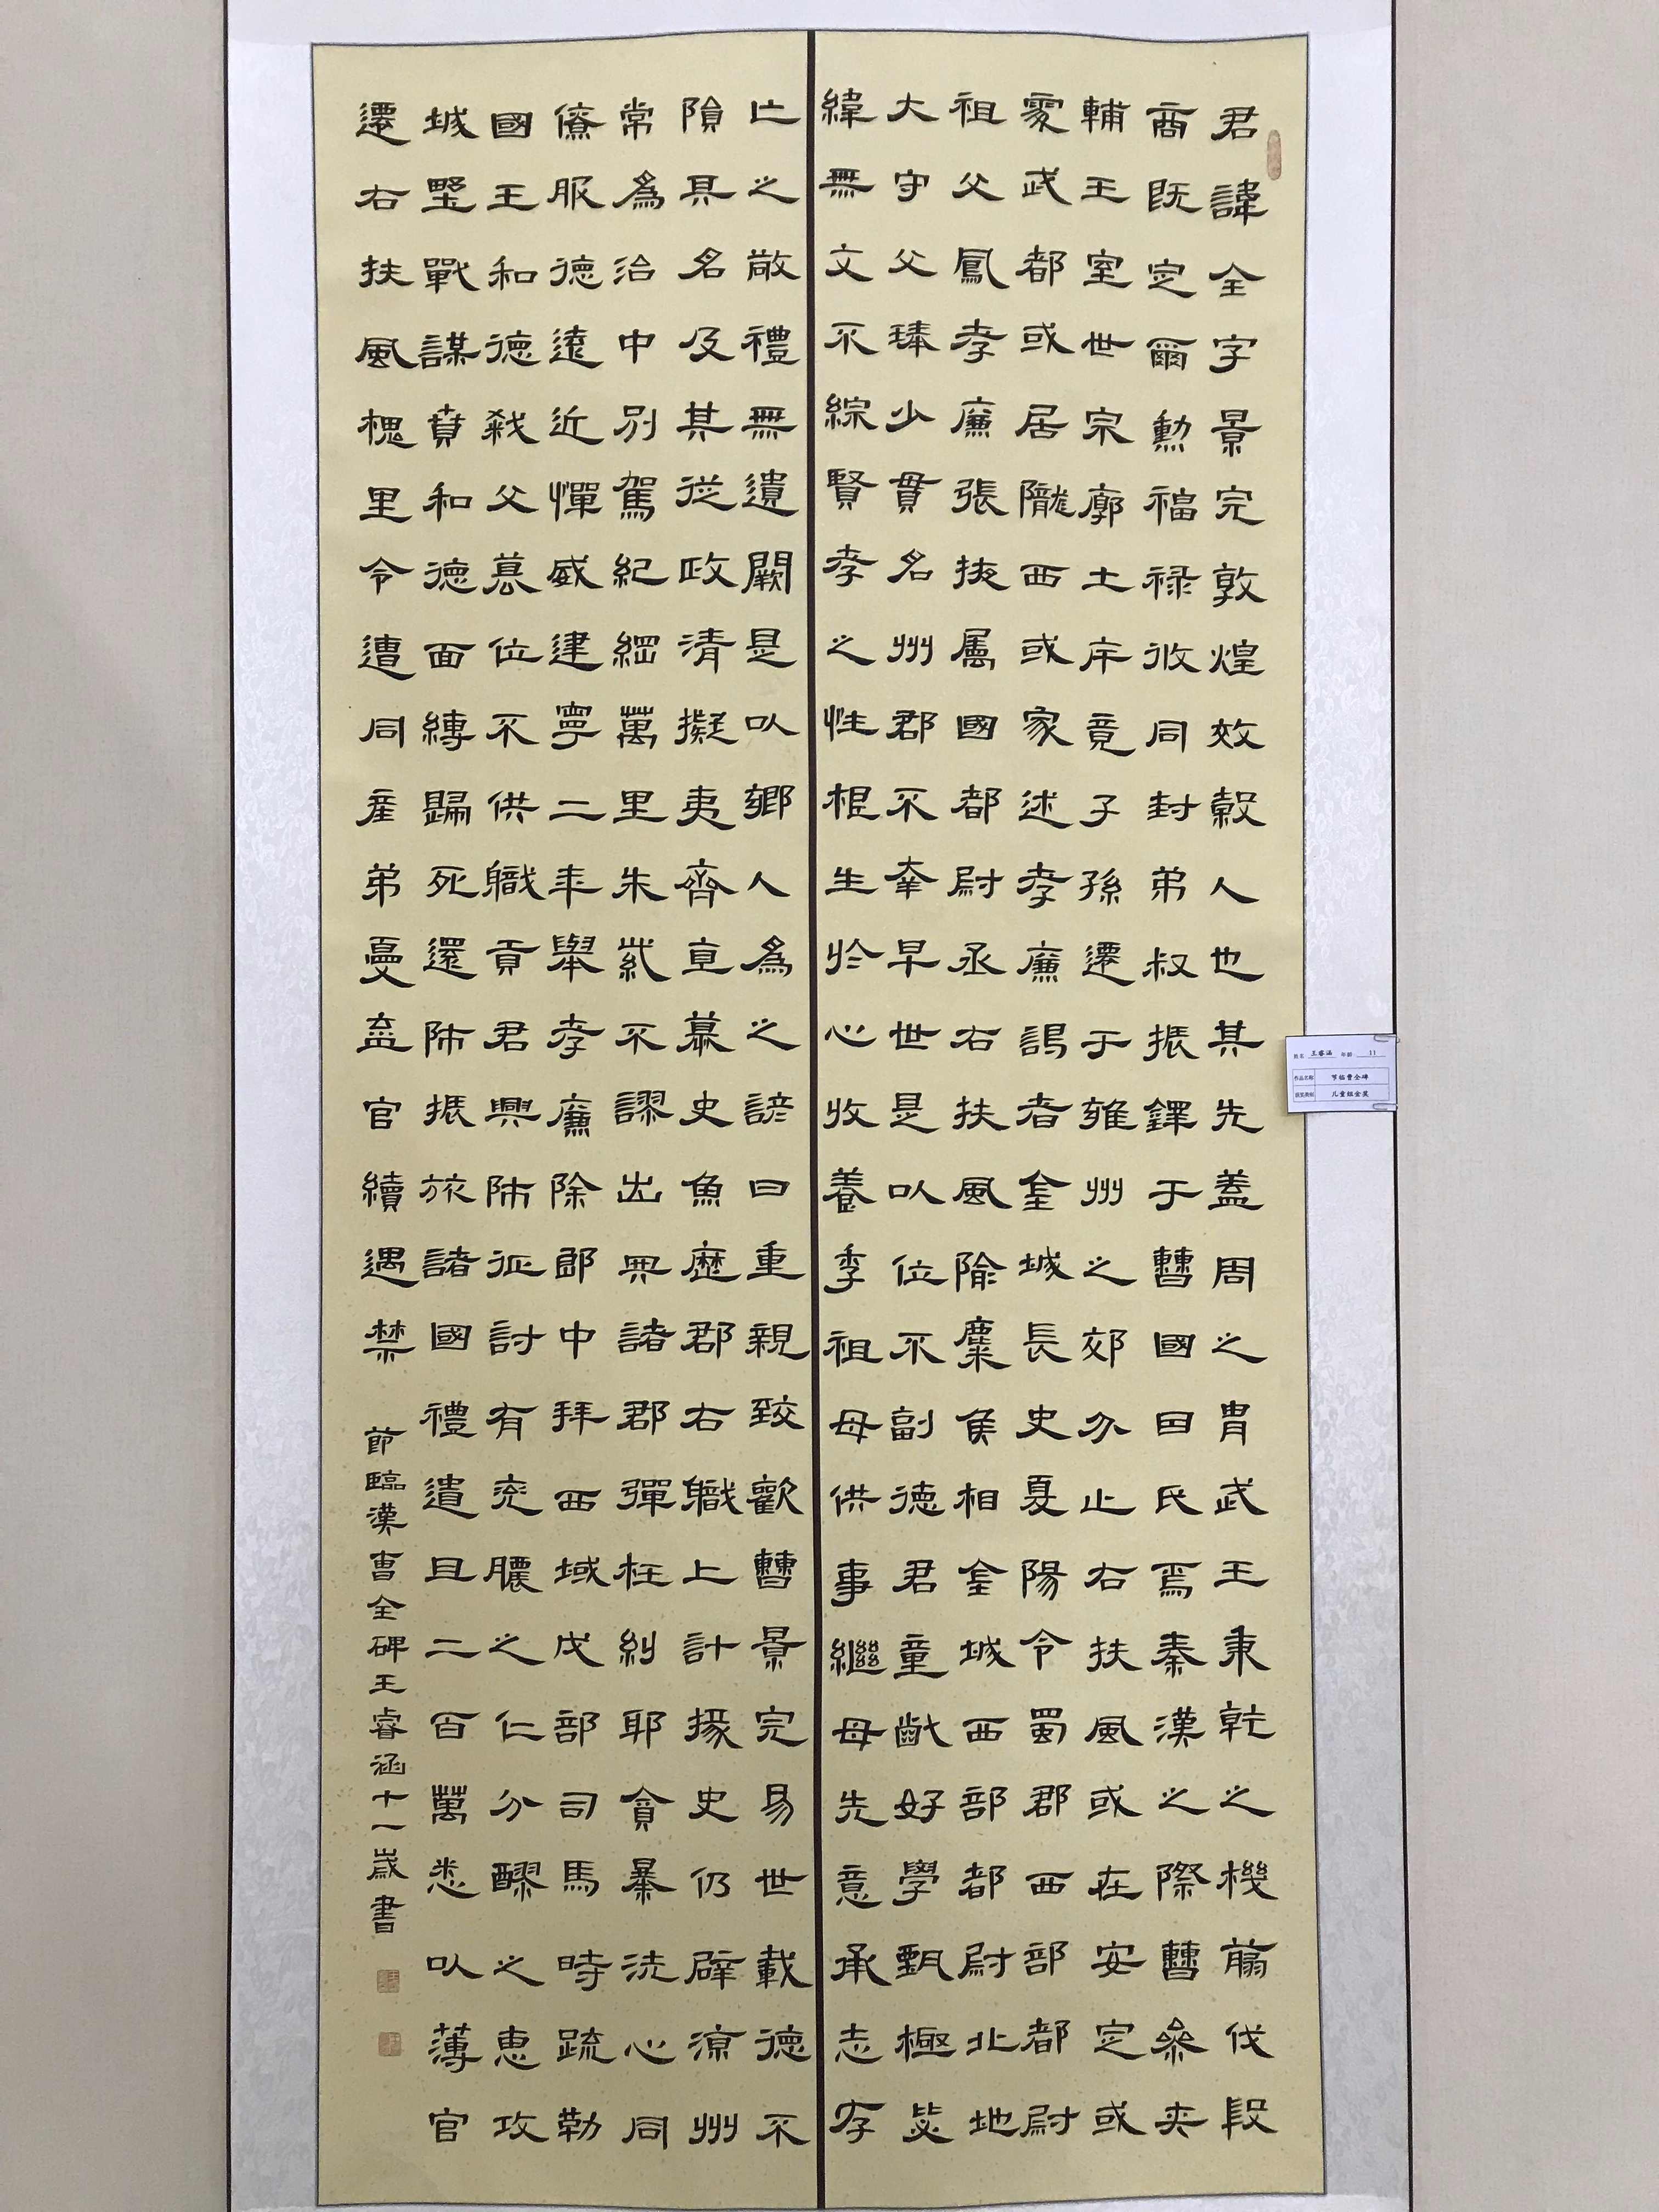 君諱全字景完敦煌效穀人也其先蓋周之胄武王秉乾之機翦伐殷
商既定爾勲福祿攸同封弟叔振鐸于曹國因氏焉秦漢之際曹參夾
輔王室世宗廓土斥竟子孫遷于雍州之郊分止右扶風或在安定或
處武都或居隴西或家述孝廉謁者金城長史夏陽令蜀郡西部都尉
祖父鳳孝廉張掖屬國都尉丞右扶風隃麋侯相金城西部都尉北地
大守父琫少貫名州郡不幸早世是以位不副德君童齔好學甄極毖
緯無文不綜賢孝之性根生於心收養季祖母供事繼母先意承志存
亡之敬禮無遺闕是以鄉人為之諺曰重親致歡曹景完易世載德不
隕其名及其從政清擬夷齊直慕史魚歷郡右職上計掾史仍辟涼州
常為治中別駕紀綱萬里朱紫不謬出典諸郡彈枉糾邪貪暴洗心同
僚服德遠近憚威建寧二年舉孝廉除郎中拜西域戊部司馬時疏勒
國王和德弒父篡位不供職貢君興師征討有兗膿之仁分醪之惠攻
城野戰謀賁和德面縛歸死還師振旅諸國禮遺且二百萬悉以薄官
遷右扶風槐里令遭同產弟憂棄官續遇禁
節臨漢曹全碑王睿涵十一歲書
姓名 王睿涵 年龄 11
作品名称 节临曹全碑
获奖类别 儿童组金奖